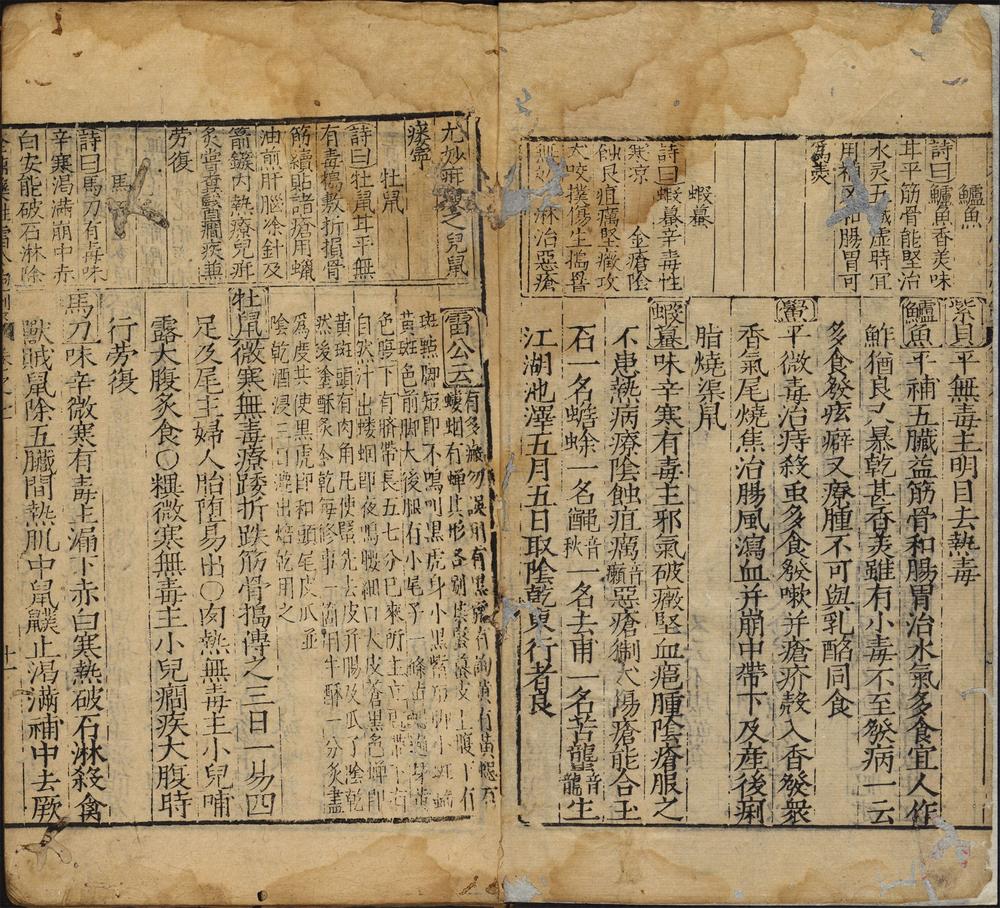 鱸魚
詩曰鱸魚香美味
甘平筋骨能堅治
水氣五臟虛時宜
用補又和腸胃可
爲羡
蝦蟇
詩曰蝦蟇辛毒性
寒凉 金瘡陰
蝕疽癘堅癥攻
犬咬撲傷生搗署
淋治惡瘡
紫貝平無毒主明目去熱毒
鱸魚平補五臟益筋骨和腸胃治水氣多食宜人作
鮓猶良又暴乾甚香美雖有小毒不至發病一云
多食發痃癖又療腫不可與乳酪同食
鱟平微毒治痔殺虫多食發嗽并瘡疥殼入香發衆
香氣尾燒焦治腸風瀉血并崩中帶下及産後痢
脂燒渠鼠
蝦蟇味辛寒有毒主邪氣破癥堅血癰腫陰瘡服之
不患熱病療陰蝕疽癘音癩惡瘡猘犬傷瘡能合玉
石一名蟾蜍一名䵷音秋一名去甫一名苦蠪音龍生
江湖池澤五月五日取陰乾東行者良
尤妙
牡鼠
詩曰牡鼠甘平無
有毒搗敷折損骨
筋續貼諸瘡用蠟
油煎肝腦塗針及
箭鏃肉熱療兒疳
炙嘗糞醫癎疾兼
勞復
馬刀
詩曰馬刀有毒味
辛寒渴滿崩中赤
白安能破石淋除
雷公云有多般勿誤用有黑虎有
斑點脚短即不鳴叫黑虎身小黑觜
黃斑色前脚大後腿有小尾子一條
色腹下有臍帶長五七分已來所主
自然汁出螻蟈即夜鳴腰細口大皮蒼黑色蟬即
黃斑頭有肉角凡使蟇先去皮并腸及瓜了陰乾
然後塗酥炙令乾每修事一箇用牛酥一分炙盡
爲度其使黑虎即和頭尾皮爪並
陰乾酒浸三日漉出焙乾用之
牡鼠微寒無毒療踒折跌筋骨搗傅之三日一易四
足及尾主婦人胎墮易出○肉熱無毒主小兒哺
露大腹炙食○糞微寒無毒主小兒癎疾大腹時
行勞復
馬刀味辛微寒有毒主漏下赤白寒熱破石淋殺禽
獸賊鼠除五臟間熱肌中鼠䑕止渴滿補中去厥